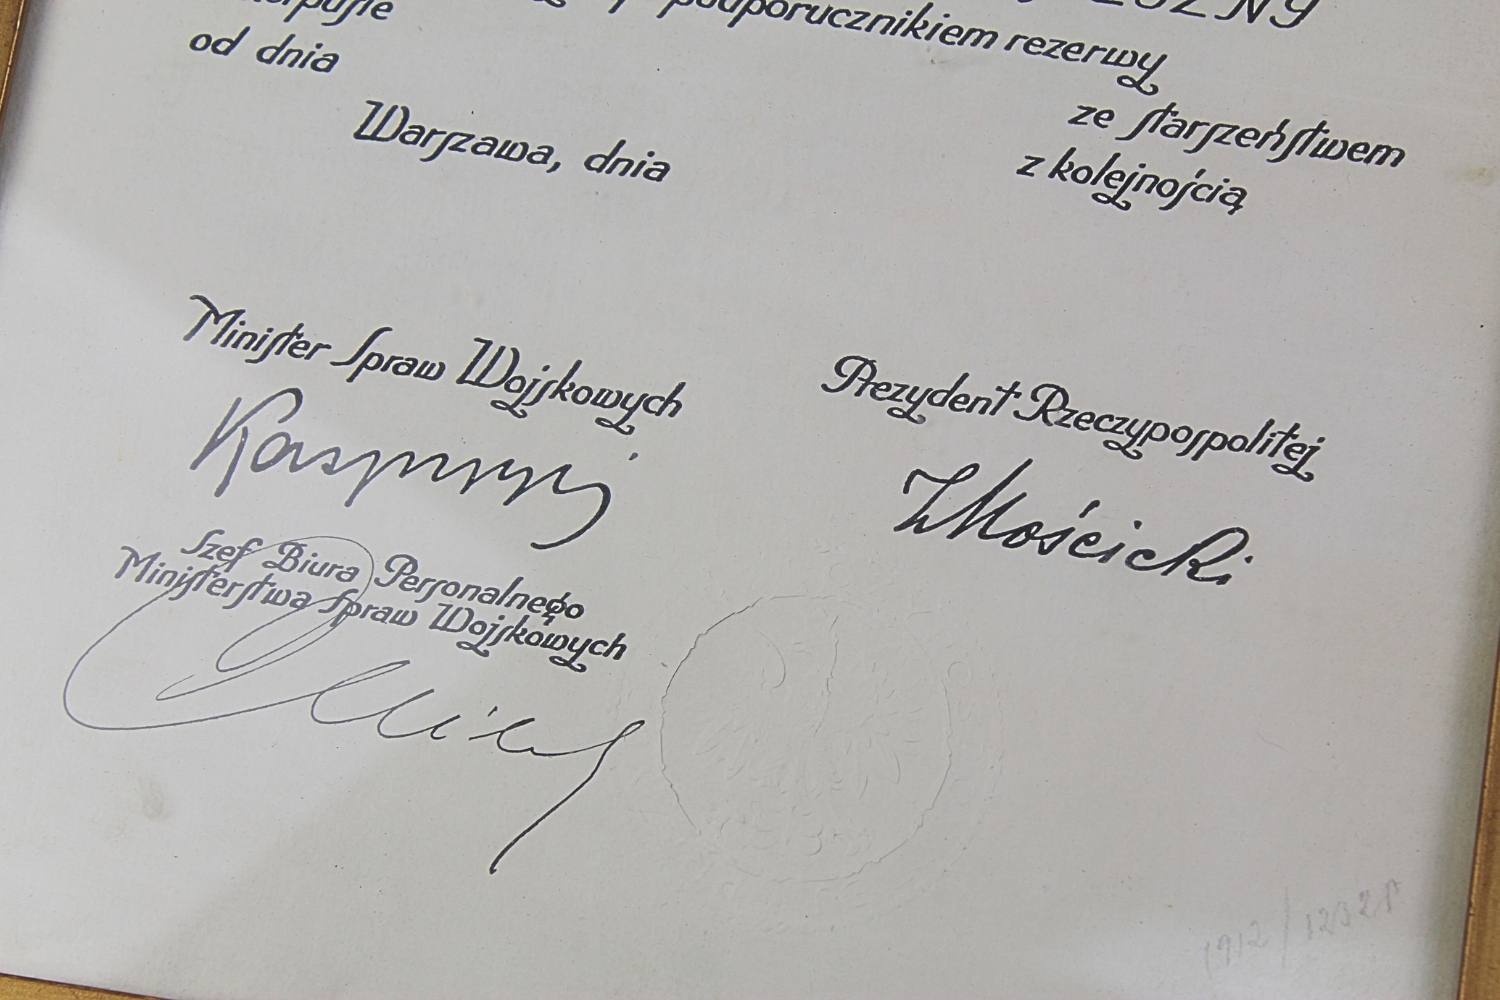 podporucznikiem rezerwy
od dnia
ze starszeństwem
Warszawa, dnia
z kolejnością
Minister Spraw Wojskowych
Prezydent Rzeczypospolitej
IMościcki
Szef Biura Personalnego
Ministerstwa Spraw Wojskowych